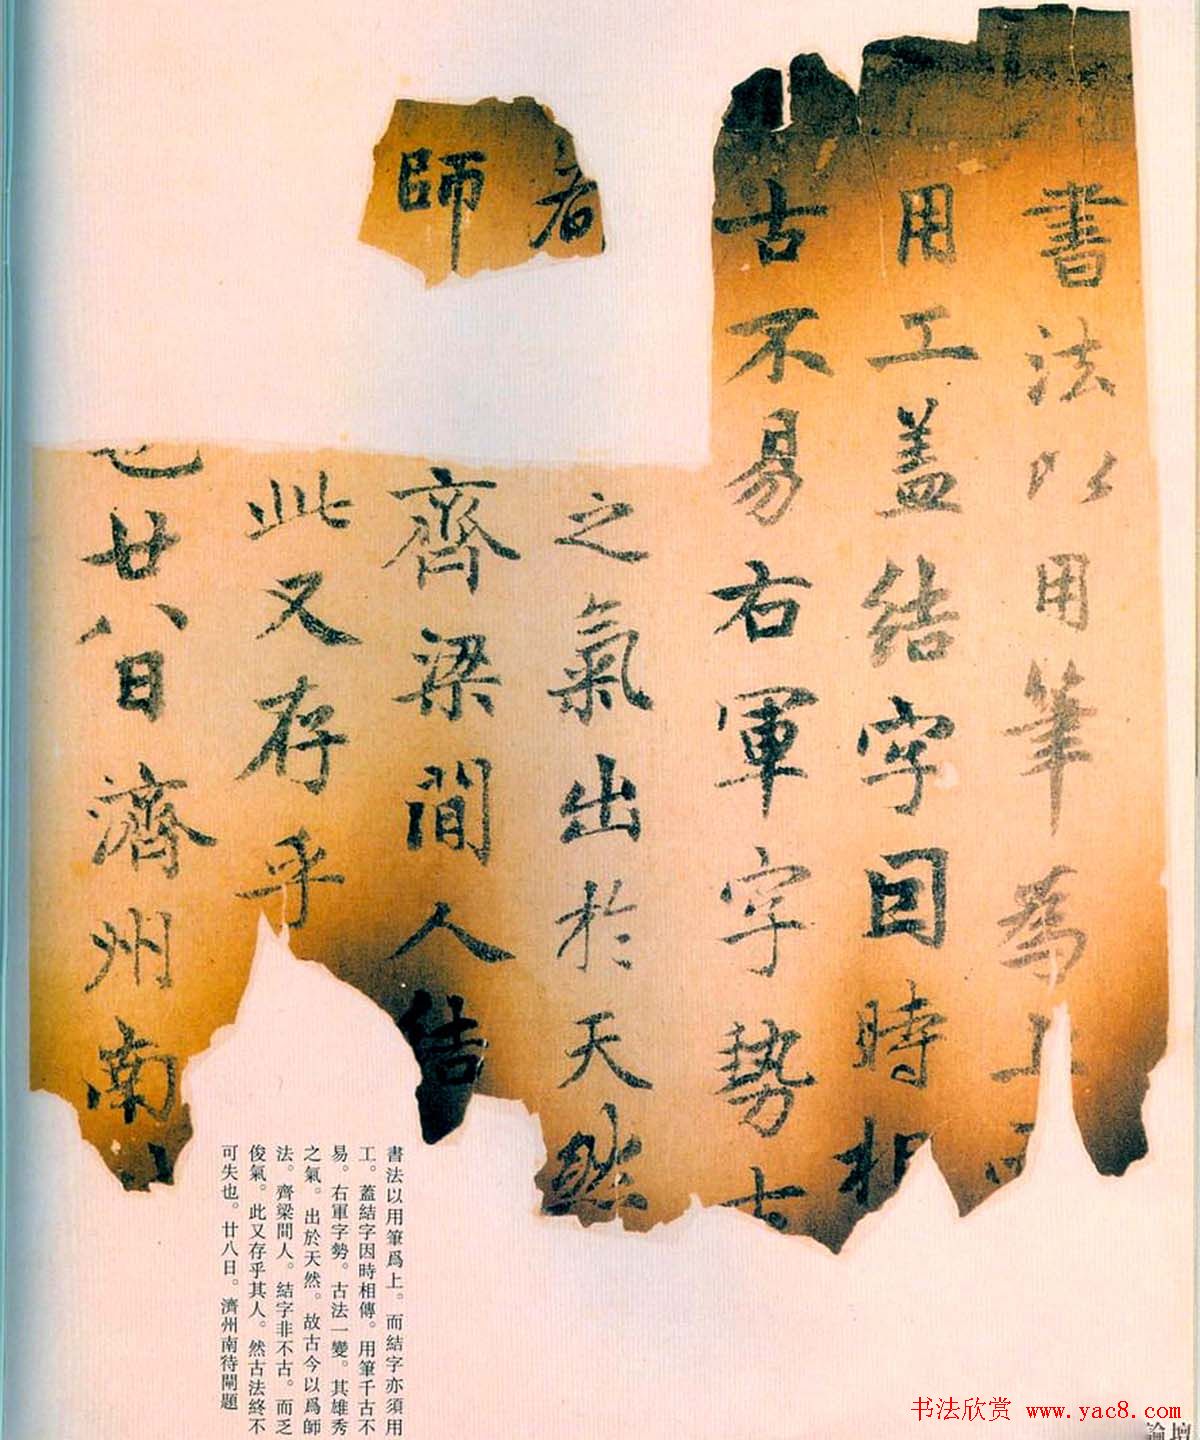 書法以用筆為上而
用工盖結字因時相
古不易右軍字勢古
之氣出於天然
者
師
齊梁間人結
此又存乎
也廿八日濟州南
書法以用筆爲上。而結字亦須用
工。蓋結字因時相傳。用筆千古不
易。右軍字勢。古法一變。其雄秀
之氣。出於天然。故古今以爲師
法。齊梁間人。結字非不古。而乏
俊氣。此又存乎其人。然古法終不
可失也。廿八日。濟州南待閘題
书法欣赏 www.yac8.com
論壇